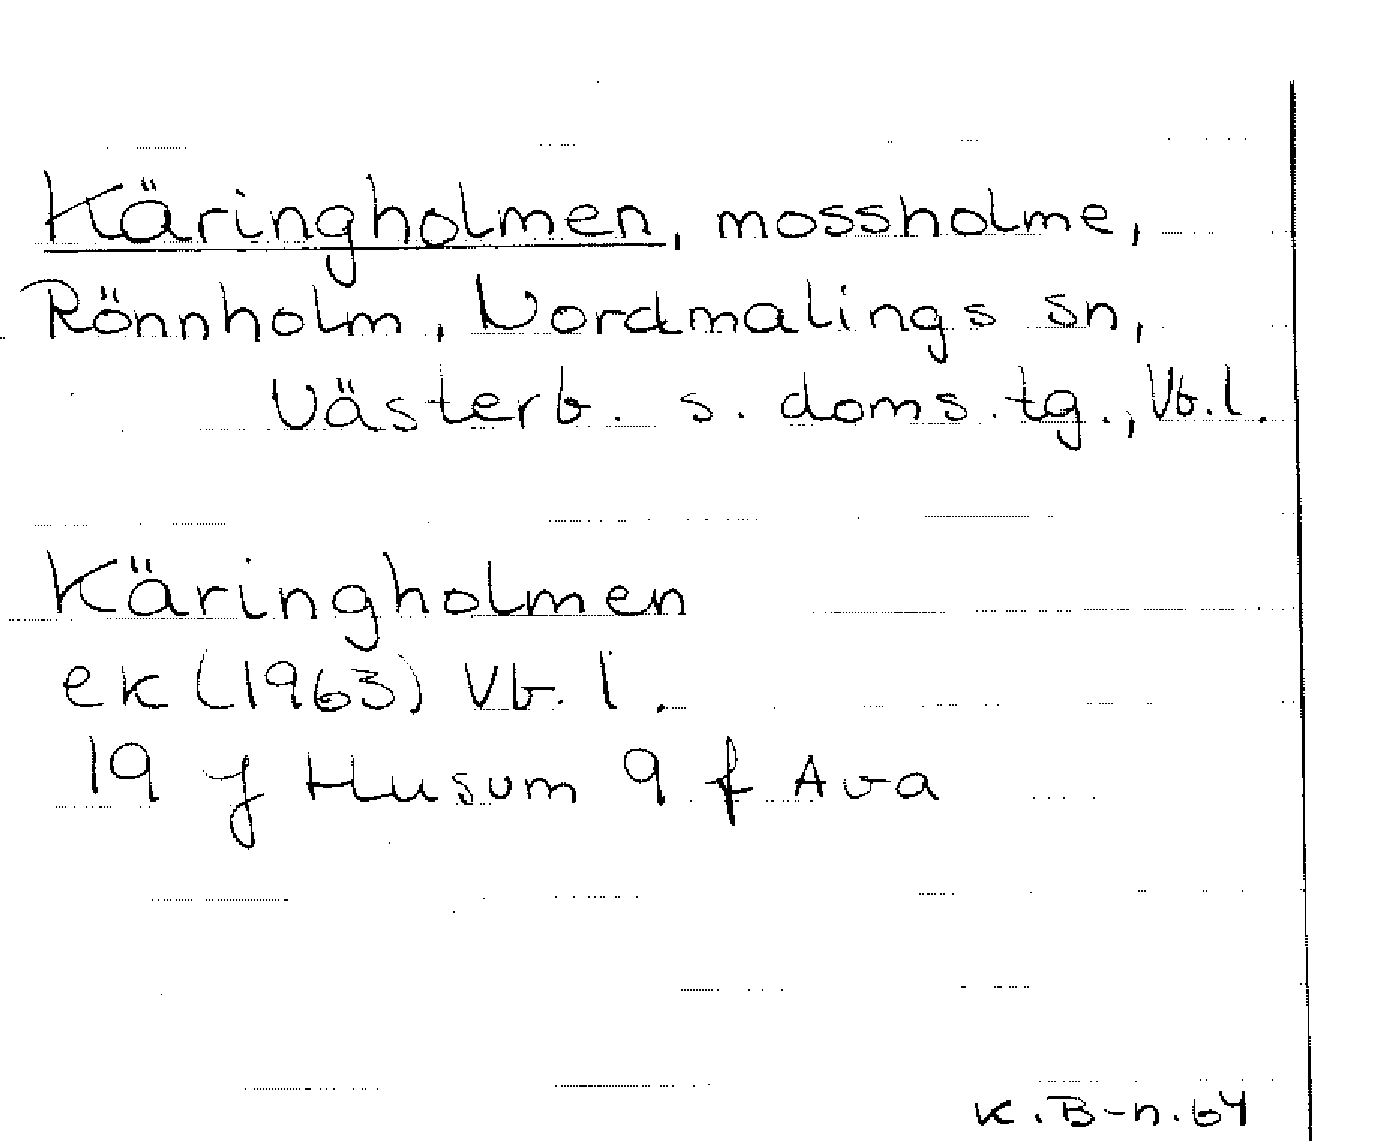 Käringholmen, mossholme,
Rönnholm, Nordmalings sn,
Västerb. s. doms.tg., Vb.l.
Käringholmen
ek (1963) Vb. l.
19 J Husum 9 f Ava
K.B-n.64